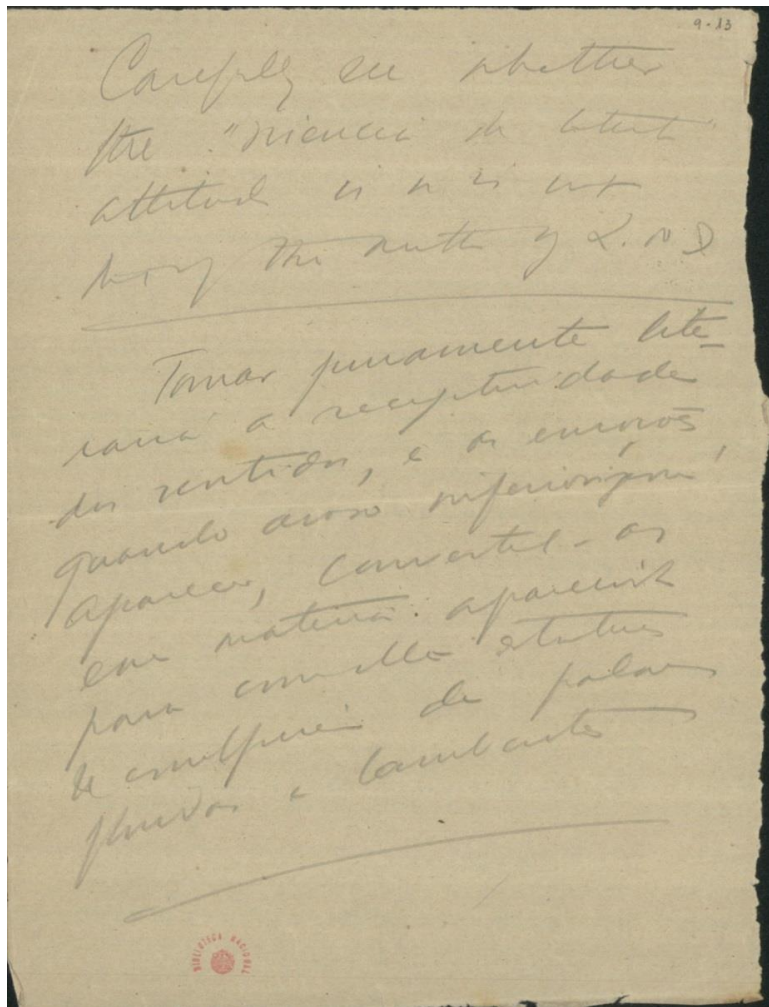 9-13
Carefully see whether
the
attitude is or is not
the of L. do D
Tornar puramente lite-
raria a receptividade
dos sentidos, e as emoções,
quando acaso inferiorizem
aparecer, convertel-as
em materia apparecida
para com ella estatuas
se esculpirem de palavras
fluidas e lambentes
BIBLIOTECA NACIONAL